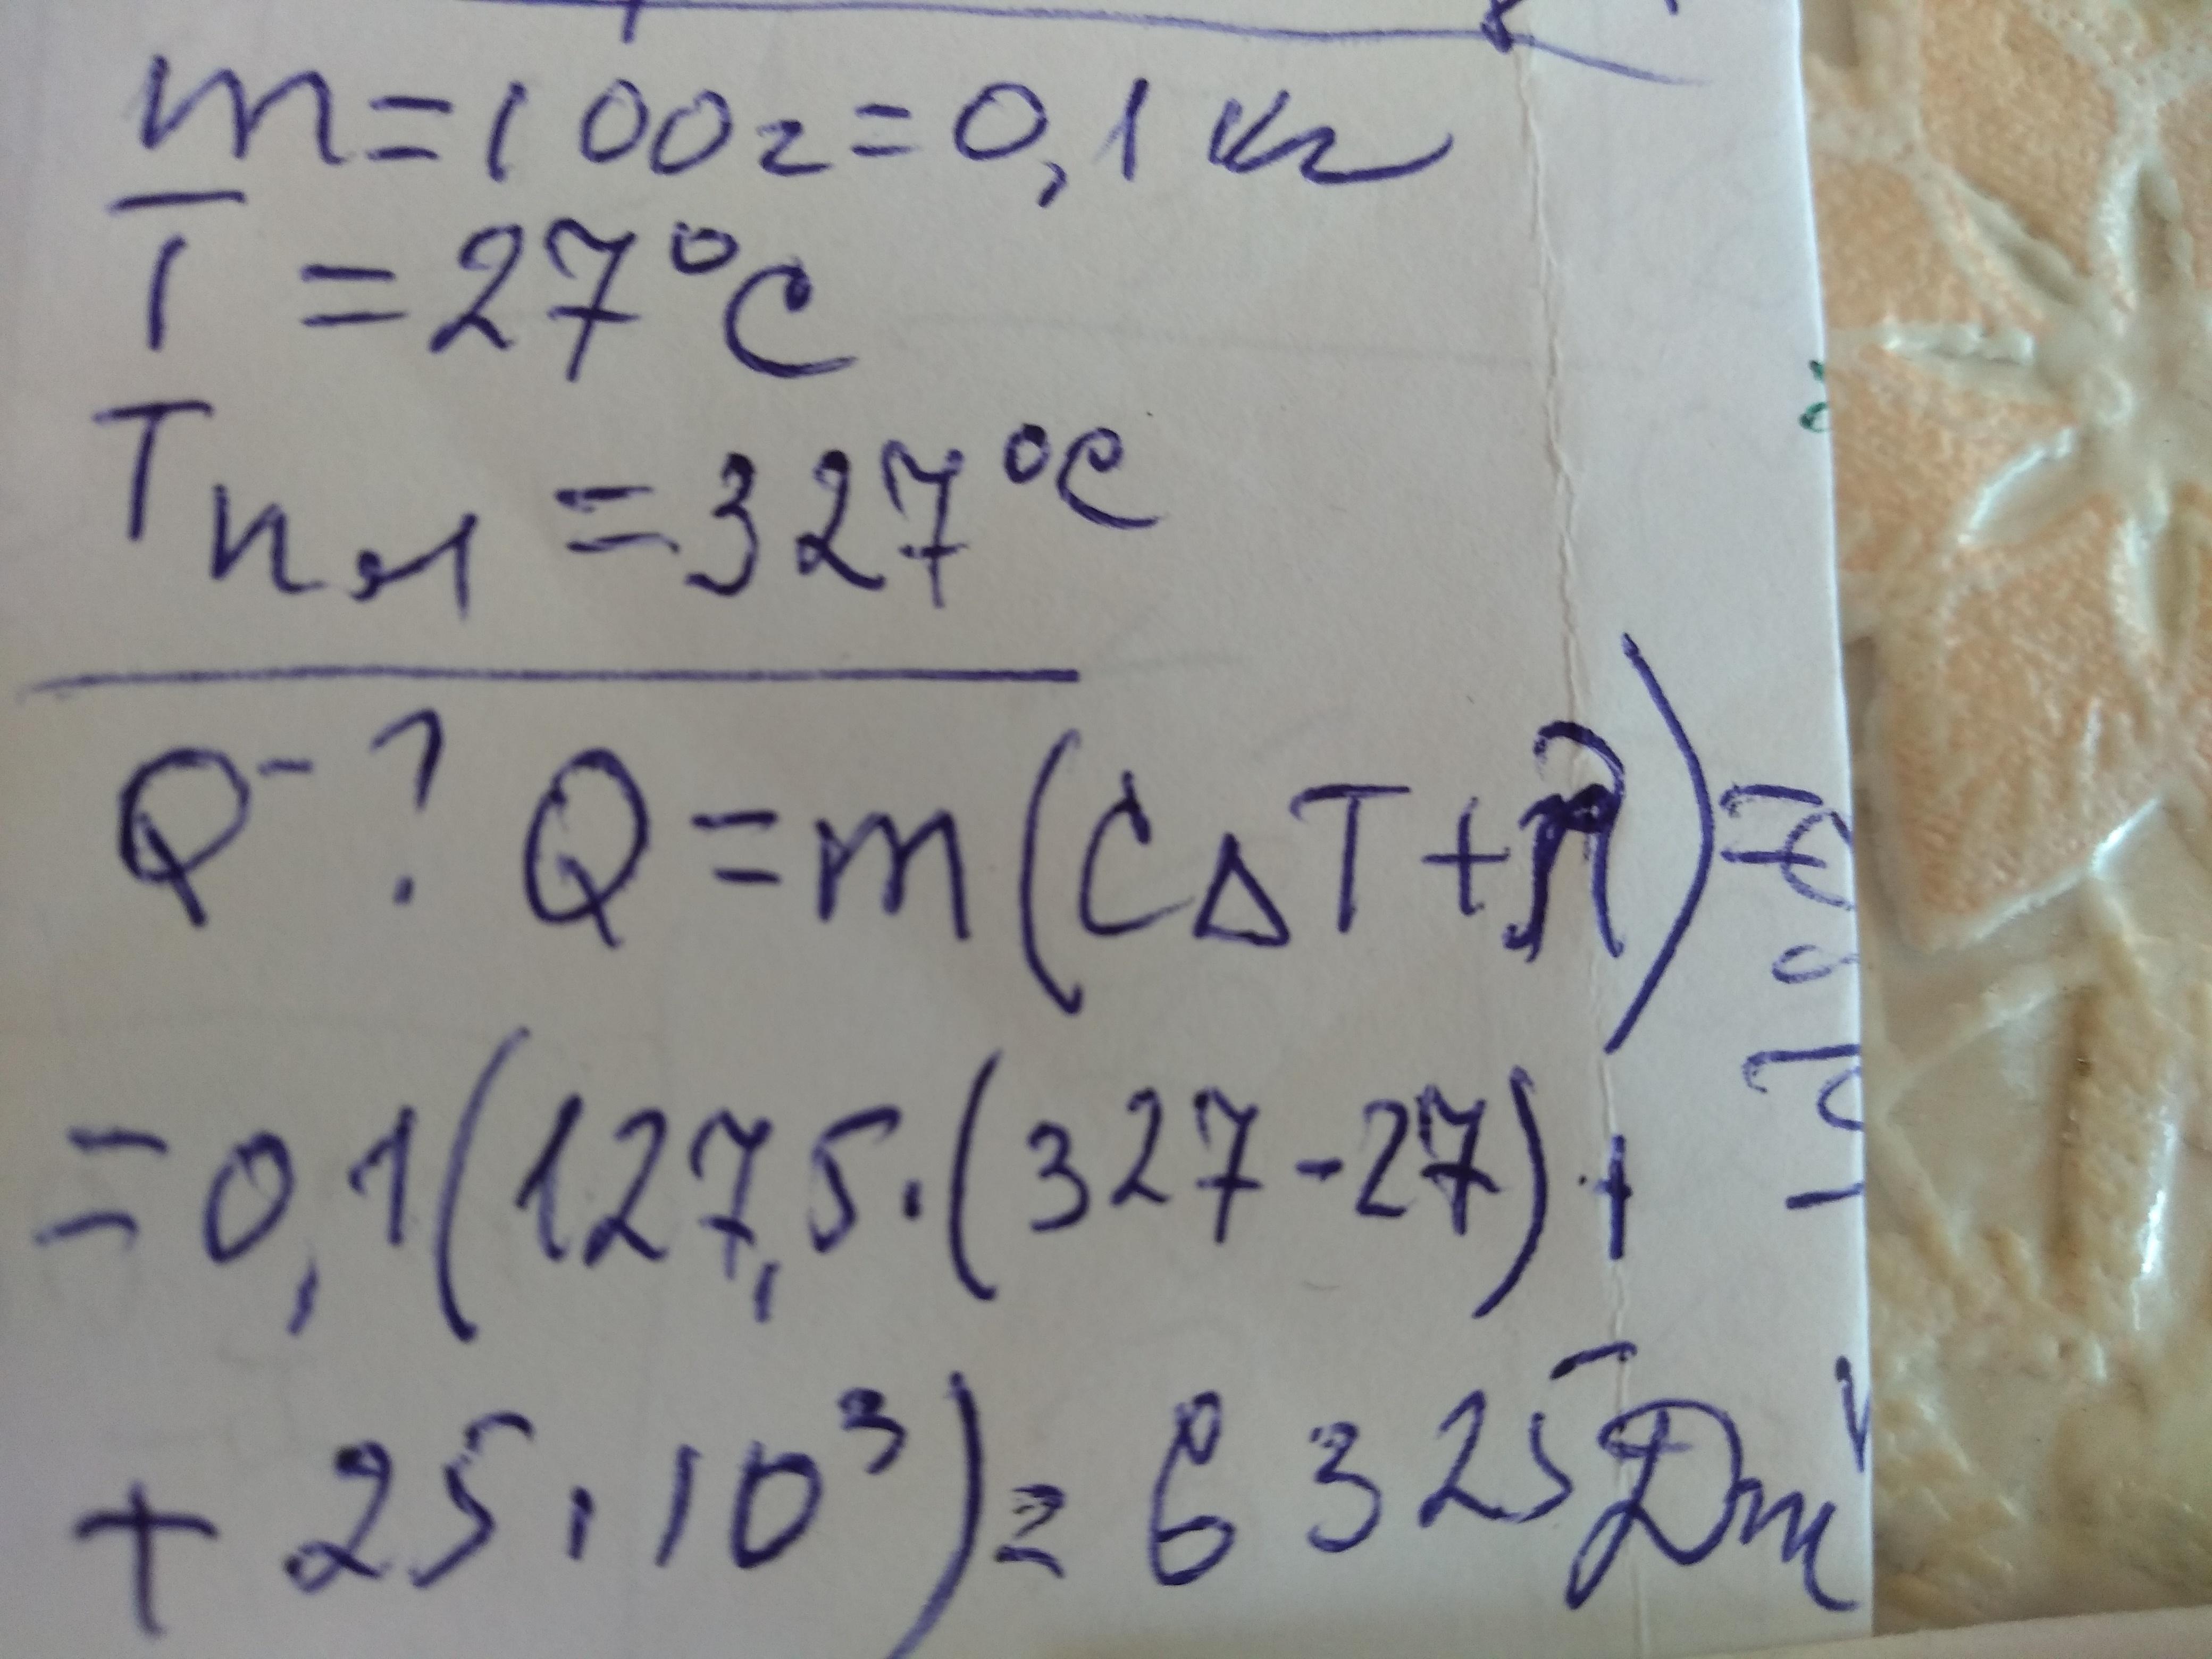 m=100г=0,1 кг
T =27°C
Tпл =327°C
Q-? Q=m(CΔT+λ)=
=0,1(127,5·(327-27)+
+25·10³)=6325Дж